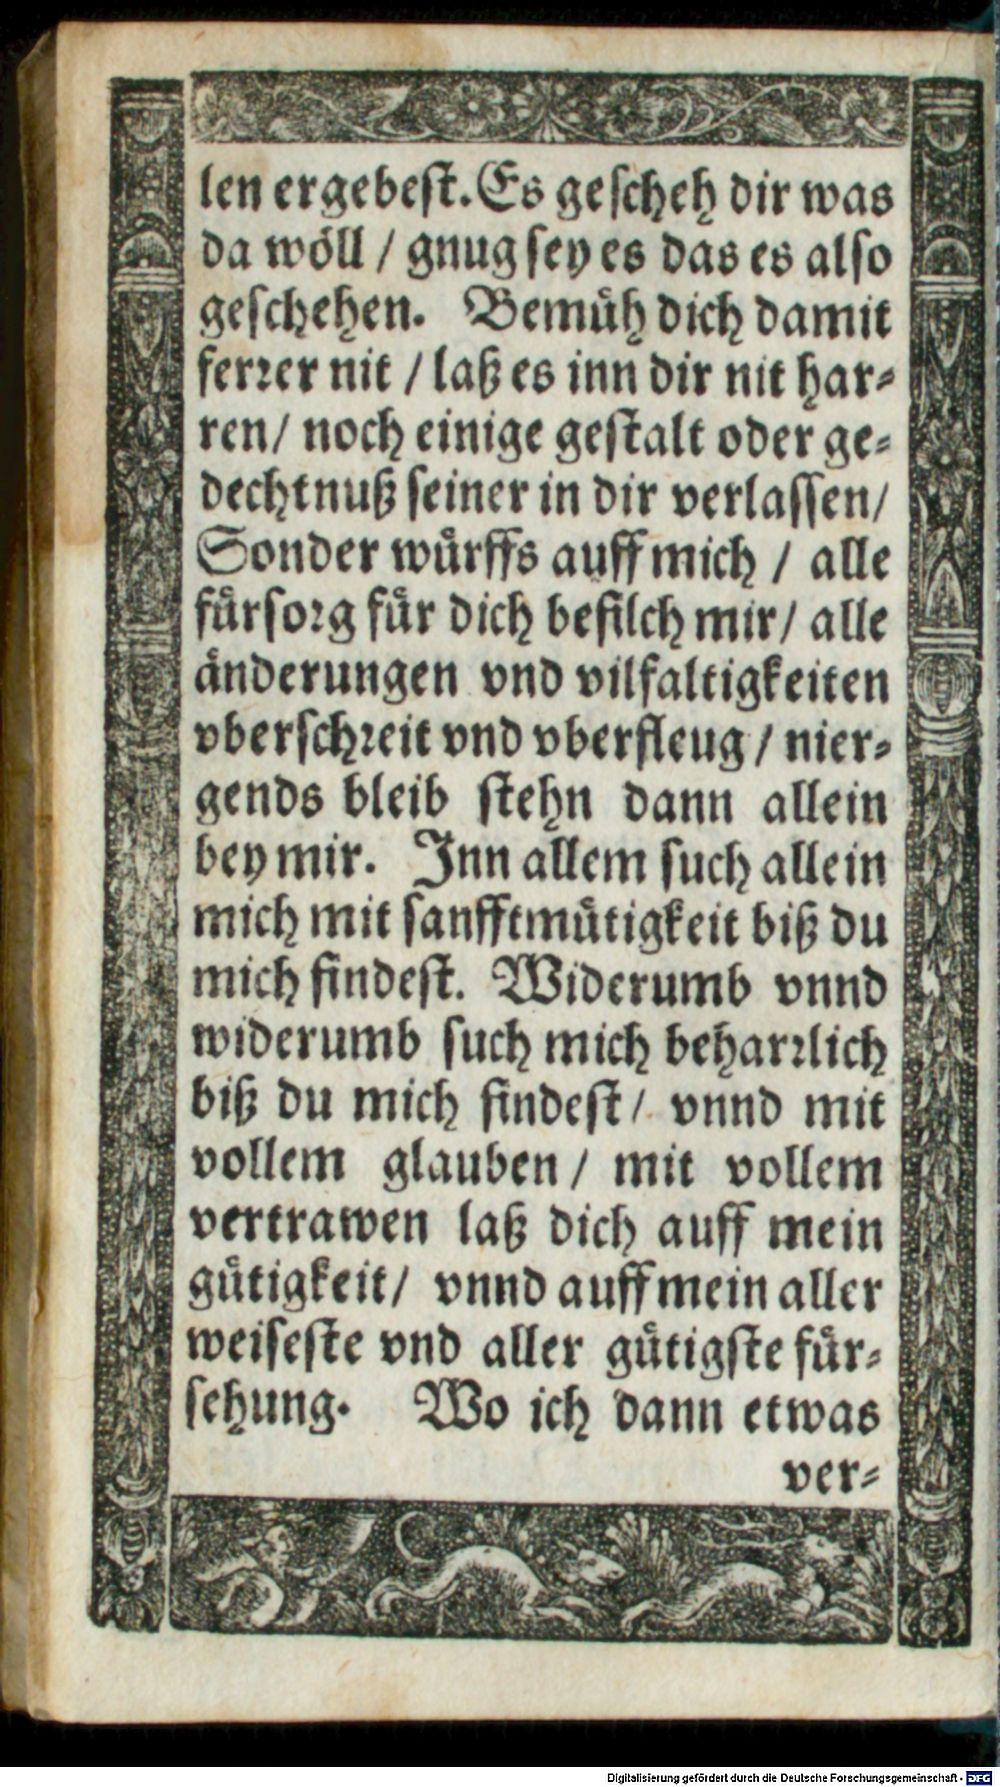 len ergebeſt. Es geſcheh dir was
da wöll / gnug ſey es das es alſo
geſchehen. Bemuͤh dich damit
ferꝛer nit / laß es inn dir nit har⸗
ren / noch einige geſtalt oder ge⸗
dechtnuß ſeiner in dir verlaſſen /
Sonder wuͤrffs auff mich / alle
fuͤrſoꝛg fuͤr dich befilch mir / alle
aͤnderungen vnd vilfaltigkeiten
vberſchꝛeit vnd vberfleug / nier⸗
gends bleib ſtehn dann allein
bey mir. Jnn allem ſuch allein
mich mit ſanfftmuͤtigkeit biß du
mich findeſt. Widerumb vnnd
widerumb ſuch mich beharꝛlich
biß du mich findeſt / vnnd mit
vollem glauben / mit vollem
vertrawen laß dich auff mein
guͤtigkeit / vnnd auff mein aller
weiſeſte vnd aller guͤtigſte fuͤr⸗
ſehung. Wo ich dann etwas
ver⸗
Digitalisierung gefördert durch die Deutsche Forschungsgemeinschaft - DFG